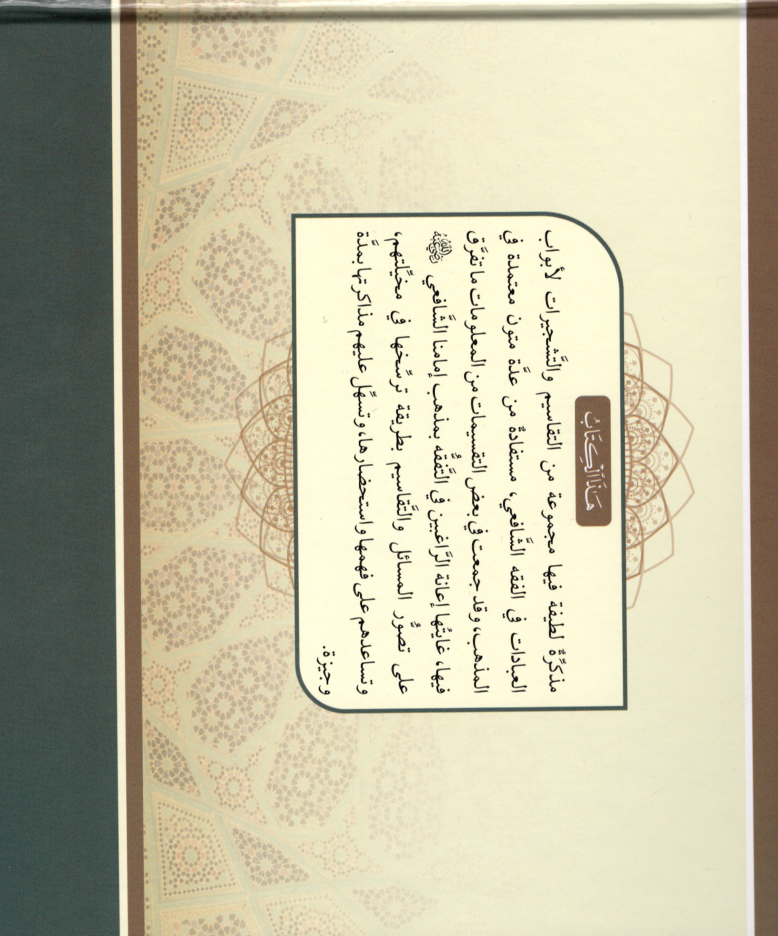 هَذَا الْكِتَابُ
مذكرةٌ لطيفة فيها مجموعة من التقاسيم والتَّشجيرات لأبواب
العبادات في الفقه الشَّافعي، مستفادةٌ من عدَّة متون معتمدة في
المذهب، وقد جمعت في بعض التقسيمات من المعلومات ما تفرَّق
فيها، غايتُها إعانة الرَّاغبين في التَّفقُّه بمذهب إمامنا الشَّافعي رضي الله عنه
على تصوُّر المسائل والتَّقاسيم بطريقة ترسِّخها في مخيَّلتهم،
وتساعدهم على فهمها واستحضارها، وتسهِّل عليهم مذاكرتها بمدَّة
وجيزة.